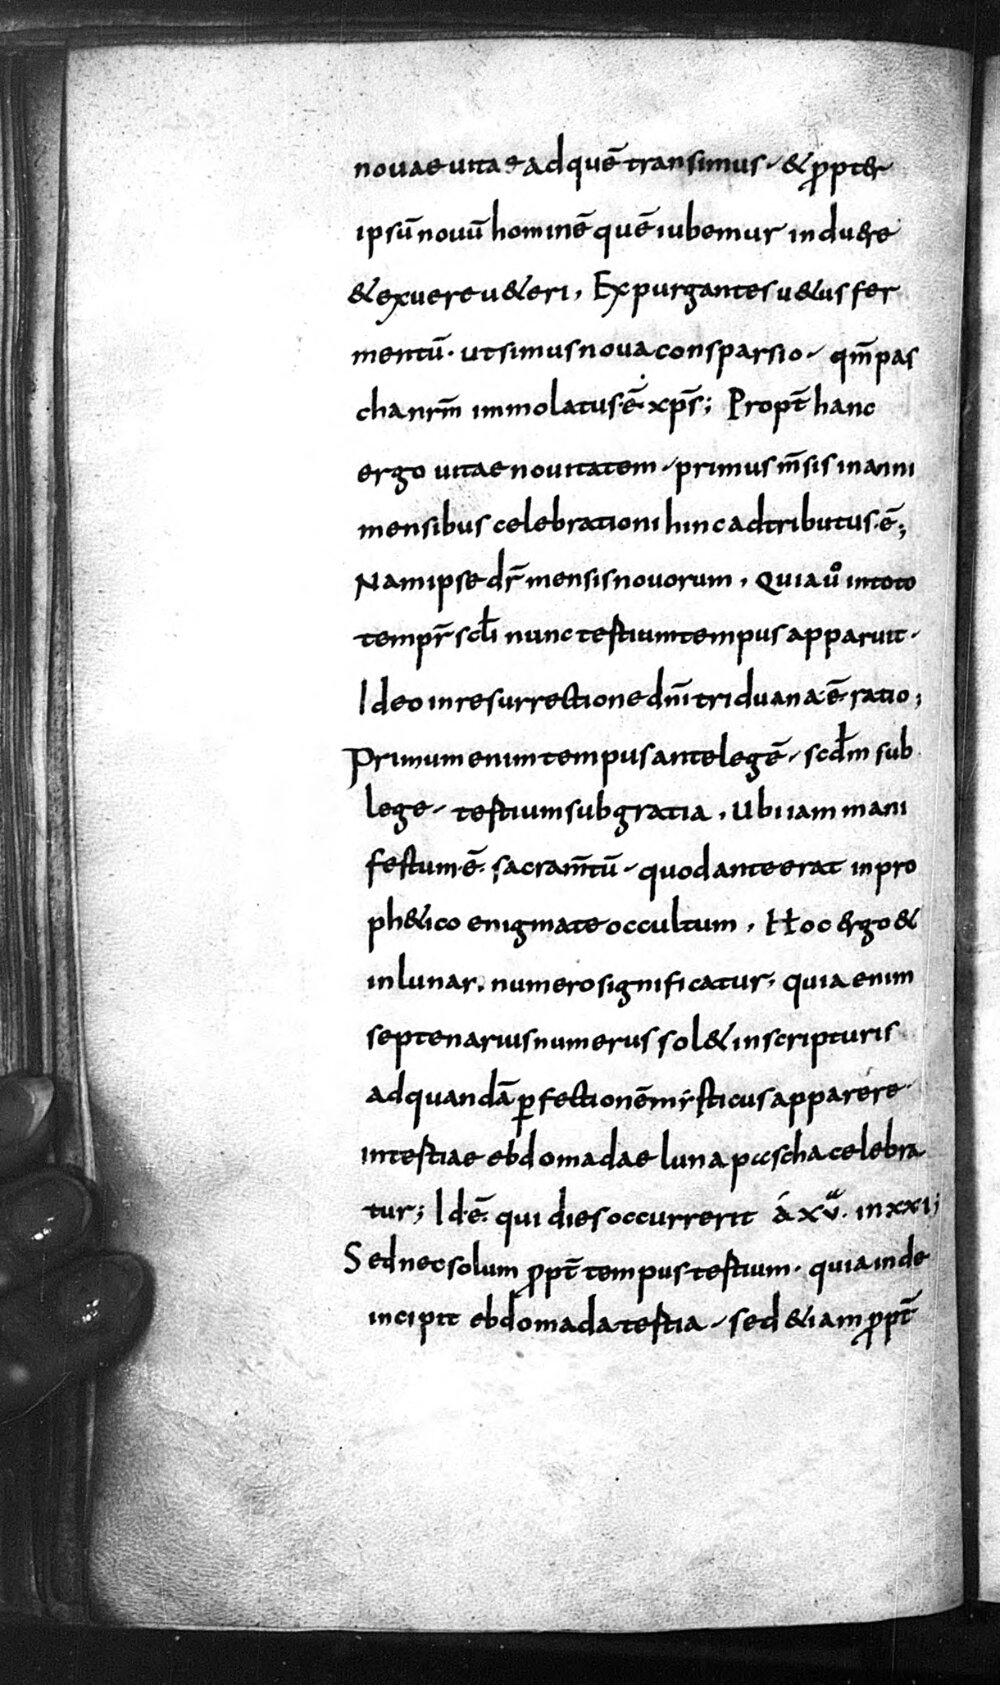 nouae uitae ad quē transimus. & ꝓpter
ipsū nouū hominē quē iubemur indu&re
& exuere u&eri, Expurgantes u&us fer
mentū. ut simus noua consparsio. qm̄ pas
cha nrm̄ immolatus ē xp̄s; Propt̄ hanc
ergo uitae nouitatem. primus m̄sis in anni
mensibus celebrationi hinc adtributus ē;
Nam ipse dr̄ mensis nouorum, Quia uº in toto
tempr̄ sclī nunc tertium tempus apparuit.
Ideo in resurrectione dnī triduana ē ratio;
Primum enim tempus ante legē. scdm̄ sub
lege. tertium sub gratia, Ubi iam mani
festum ē sacram̄tū. quod ante erat in pro
ph&ico enigmate occultum, Hoc ergo &
in lunar. numero significatur, quia enim
septenarius numerus sol& in scripturis
ad quandā ꝑfectionē mysticus apparere
in tertiae ebdomadae luna pascha celebra
tur; Id ē qui dies occurrerit a xv. in xxi;
Sed nec solum ꝓpt̄ tempus tertium. quia inde
incipit ebdomada tertia. sed &iam ꝓpt̄